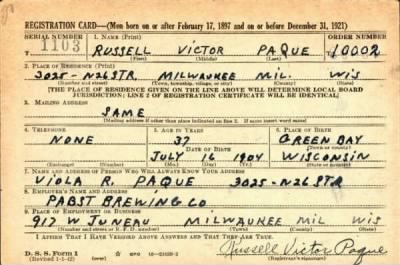 REGISTRATION CARD—(Men born on or after February 17, 1897 and on or before December 31, 1921)
SERIAL NUMBER 1. NAME (Print) ORDER NUMBER
1103 RUSSELL VICTOR PAQUE 10002
(First) (Middle) (Last)
2. PLACE OF RESIDENCE (Print)
3025-N26STR. MILWAUKEE MIL. WIS
(Number and street) (Town, township, village, or city) (County) (State)
[THE PLACE OF RESIDENCE GIVEN ON THE LINE ABOVE WILL DETERMINE LOCAL BOARD
JURISDICTION; LINE 2 OF REGISTRATION CERTIFICATE WILL BE IDENTICAL]
3. MAILING ADDRESS
SAME
(Mailing address if other than place indicated on line 2. If same insert word same)
4. TELEPHONE 5. AGE IN YEARS 6. PLACE OF BIRTH
NONE 37 GREEN BAY
DATE OF BIRTH (Town or county)
JULY 16 1904 WISCONSIN
(Exchange) (Number) (Mo.) (Day) (Yr.) (State or country)
7. NAME AND ADDRESS OF PERSON WHO WILL ALWAYS KNOW YOUR ADDRESS
VIOLA R. PAQUE 3025-N26STR
8. EMPLOYER'S NAME AND ADDRESS
PABST BREWING CO
9. PLACE OF EMPLOYMENT OR BUSINESS
917 W JUNEAU MILWAUKEE MIL WIS
(Number and street or R. F. D. number) (Town) (County) (State)
I AFFIRM THAT I HAVE VERIFIED ABOVE ANSWERS AND THAT THEY ARE TRUE.
D. S. S. Form 1
(Revised 1-1-42) GPO Russell Victor Paque